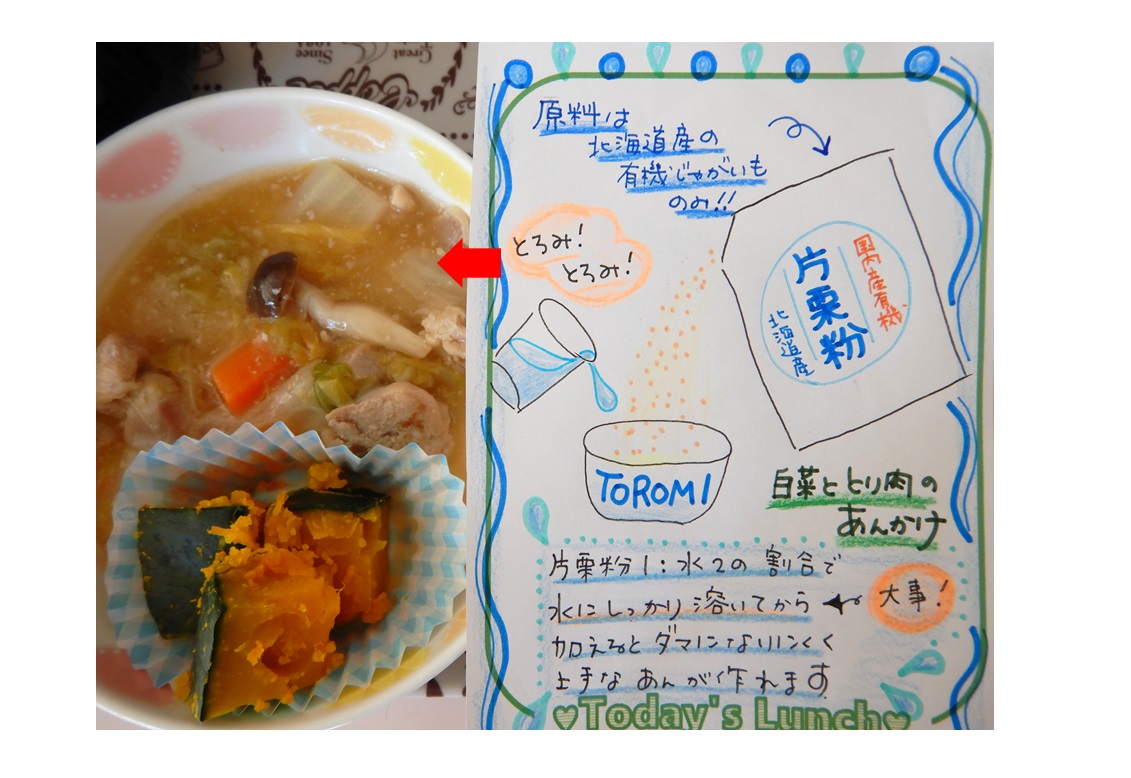 Great
Since
1984
原料は
北海道産の
有機じゃがいも
のみ!!
とろみ!
とろみ!
国内産有機
片栗粉
北海道産
TOROMI
白菜ととり肉の
あんかけ
片栗粉1:水2の割合で
水にしっかり溶いてから
大事!
加えるとダマになりにくく
上手なあんが作れます
♥Today's Lunch♥